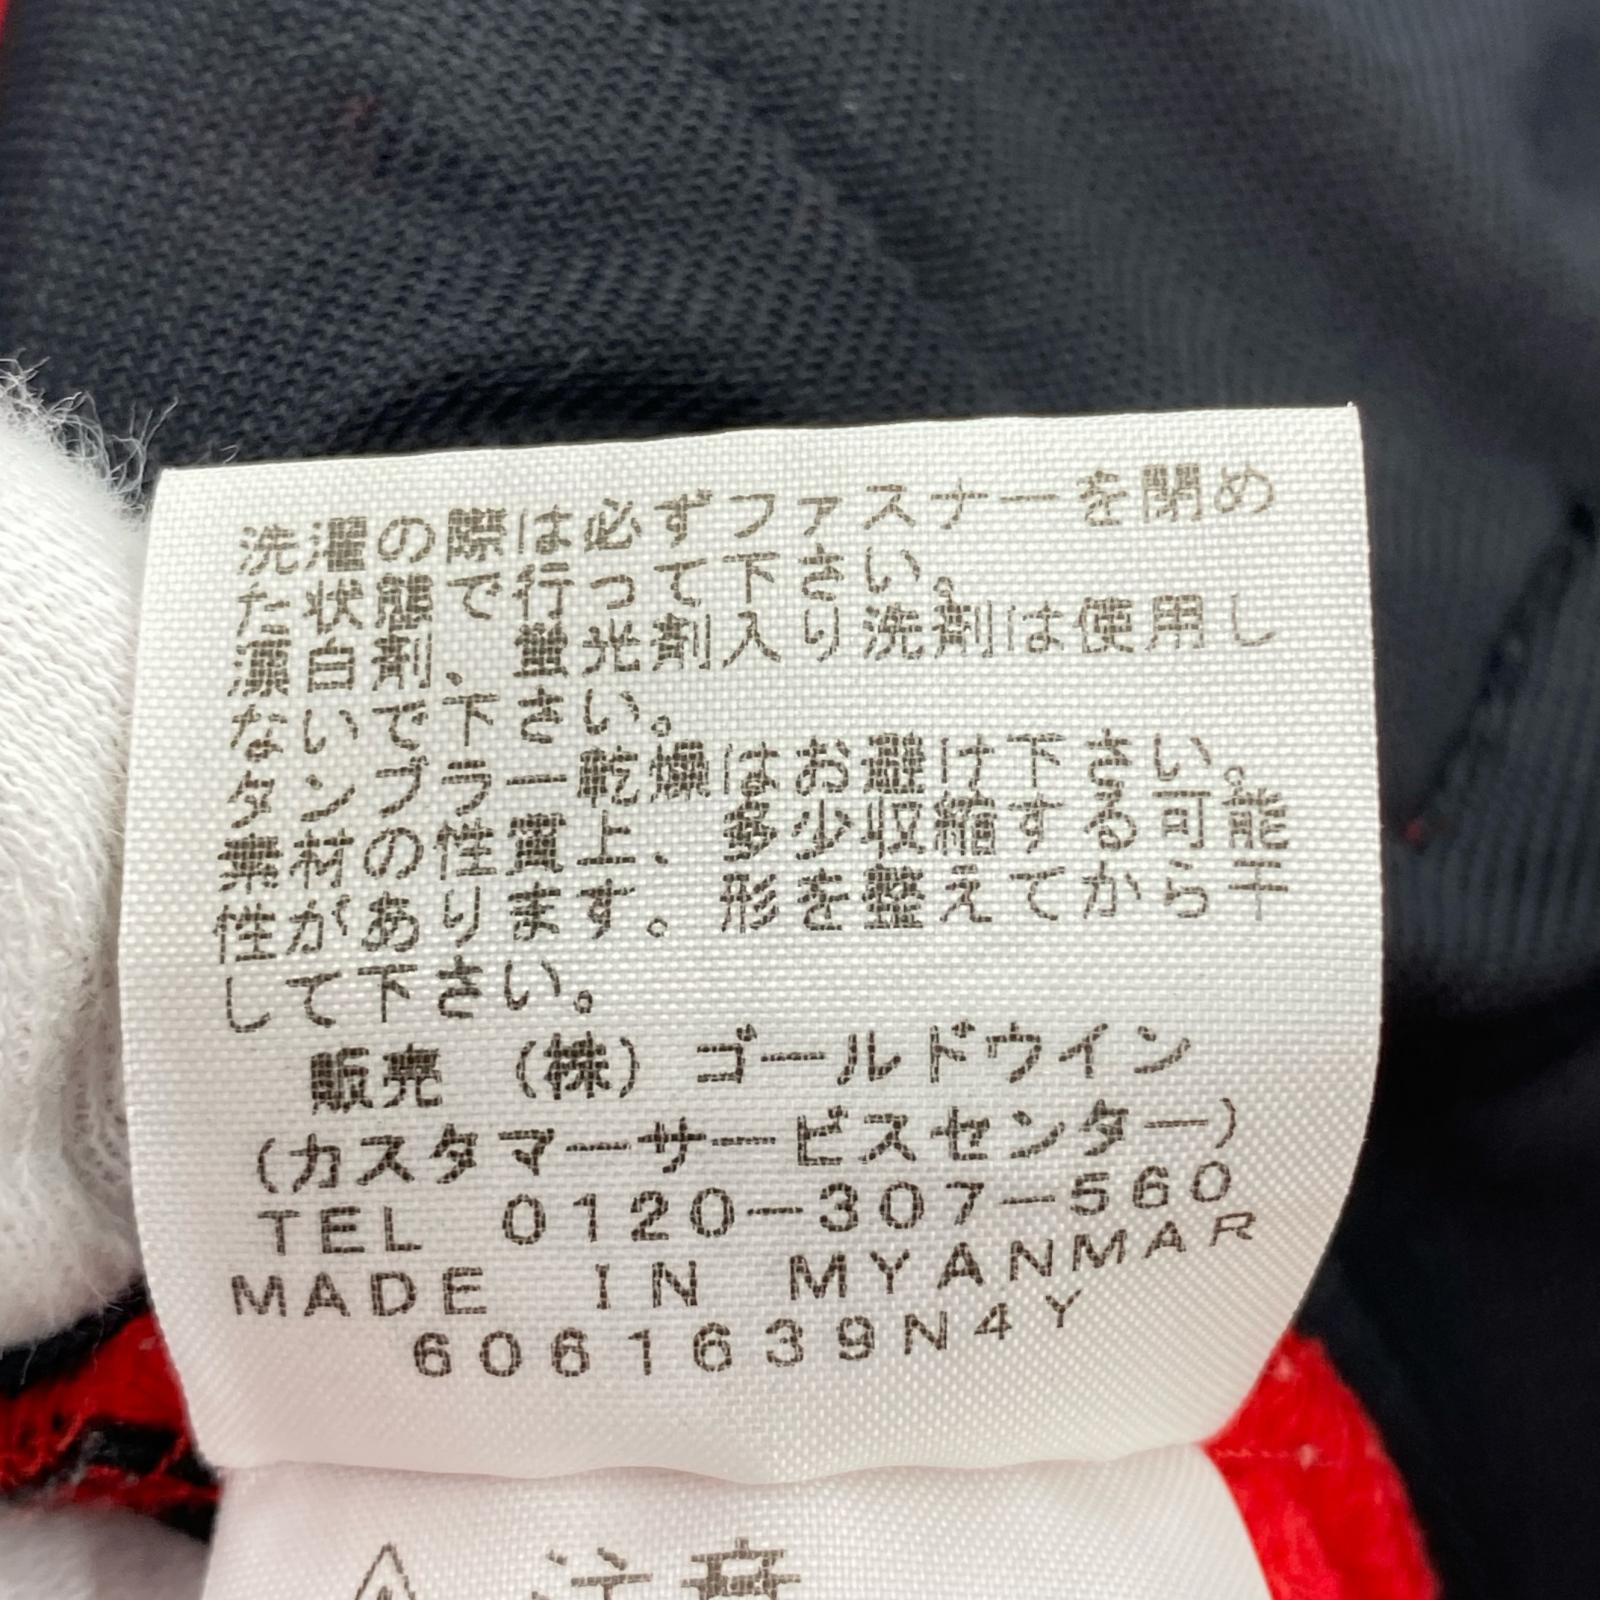 洗濯の際は必ずファスナーを閉め
た状態で行って下さい。
漂白剤、蛍光剤入り洗剤は使用し
ないで下さい。
タンブラー乾燥はお避け下さい。
素材の性質上、多少収縮する可能
性があります。形を整えてから干
して下さい。
販売 (株) ゴールドウイン
(カスタマーサービスセンター)
TEL 0120-307-560
MADE IN MYANMAR
6061639N4Y
⚠ 注意